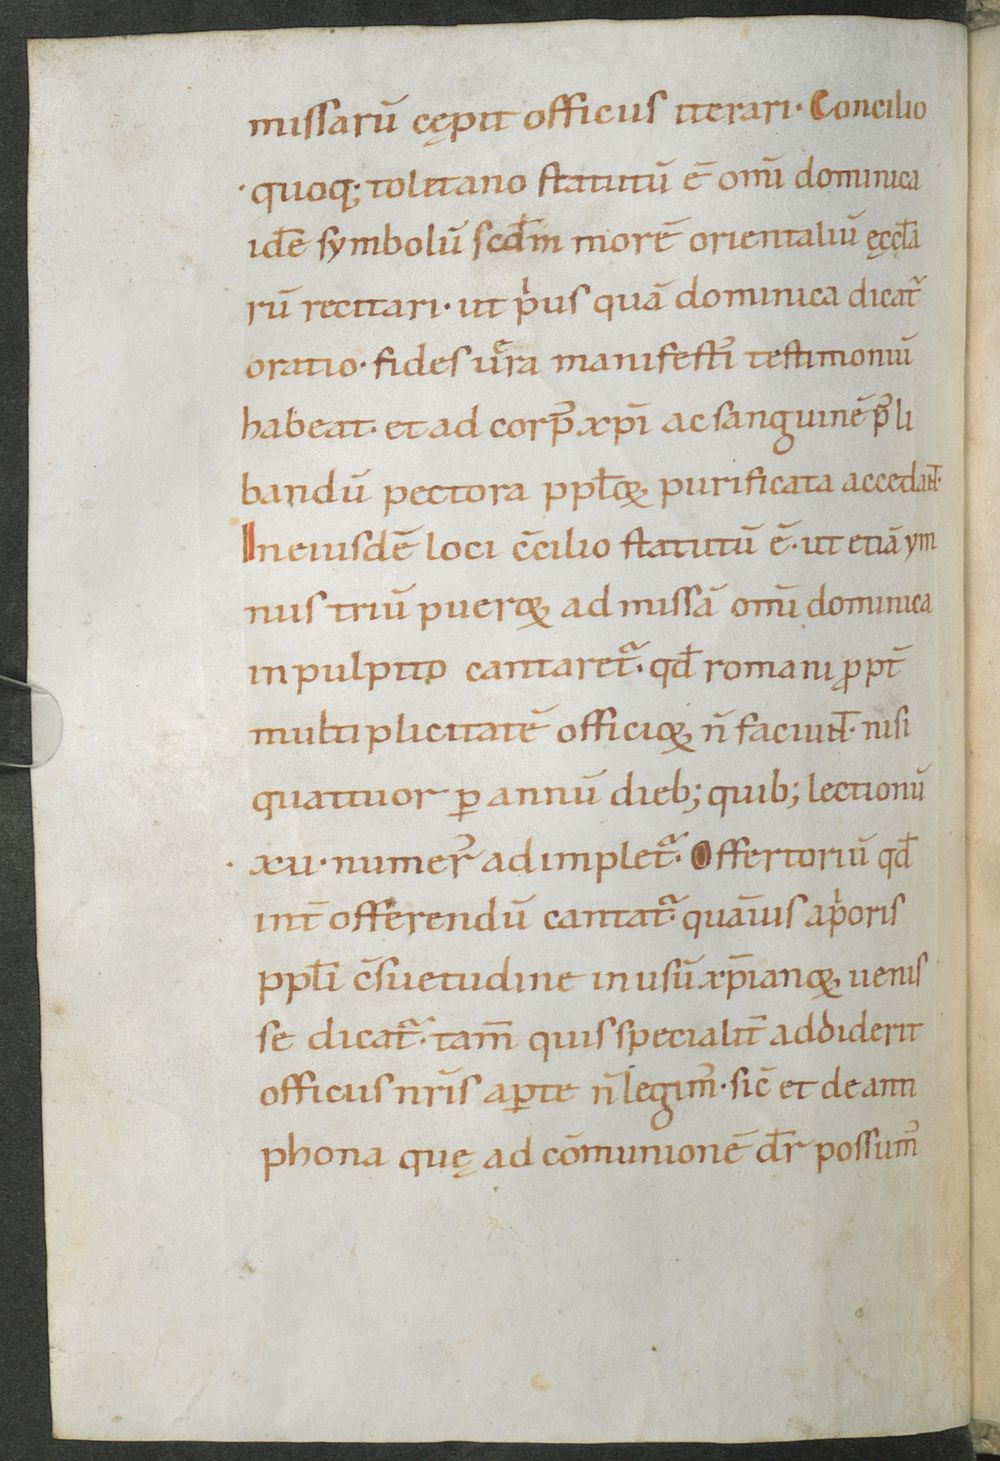 missarū cępit officiis iterari· Concilio
·quoq; tolitano statutū ē om̄i dominica
idē symbolū scd̄m morē orientaliū ęccl̄a
rū recitari· ut p̍us quā dominica dicat᷑
oratio· fides ur̄a manifestū testimoniū
habeat· et ad corp᷒ xp̄i ac sanguinē p̄li
bandū pectora ppl̄oꝝ purificata accedant·
In eiusdē loci c̄cilio statutū ē· ut etiā ym
nus triū pueroꝝ ad missā om̄i dominica
in pulpito cantaret᷑· qd̄ romani ꝓpt̄
multiplicitatē officioꝝ n̄ faciunt· nisi
quattuor ꝑ annū dieb; quib; lectionū
·xu· numer᷒ adimplet᷑· Offertoriū qd̄
int̄ offerendū cantat᷑· quāuis a p̍oris
ppl̄i c̄suetudine in usū xp̄ianoꝝ uenis
se dicat᷑· tam̄ quis specialit̄ addiderit
officiis nr̄is aꝑte n̄ legim᷒· sic̄ et de anti
phona quę ad cōmunionē dr̄ possum᷒